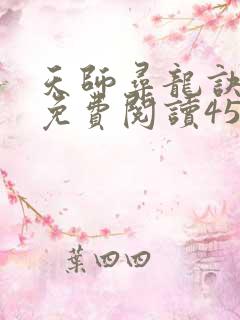 天師尋龍訣
免費閱讀45
葉四四